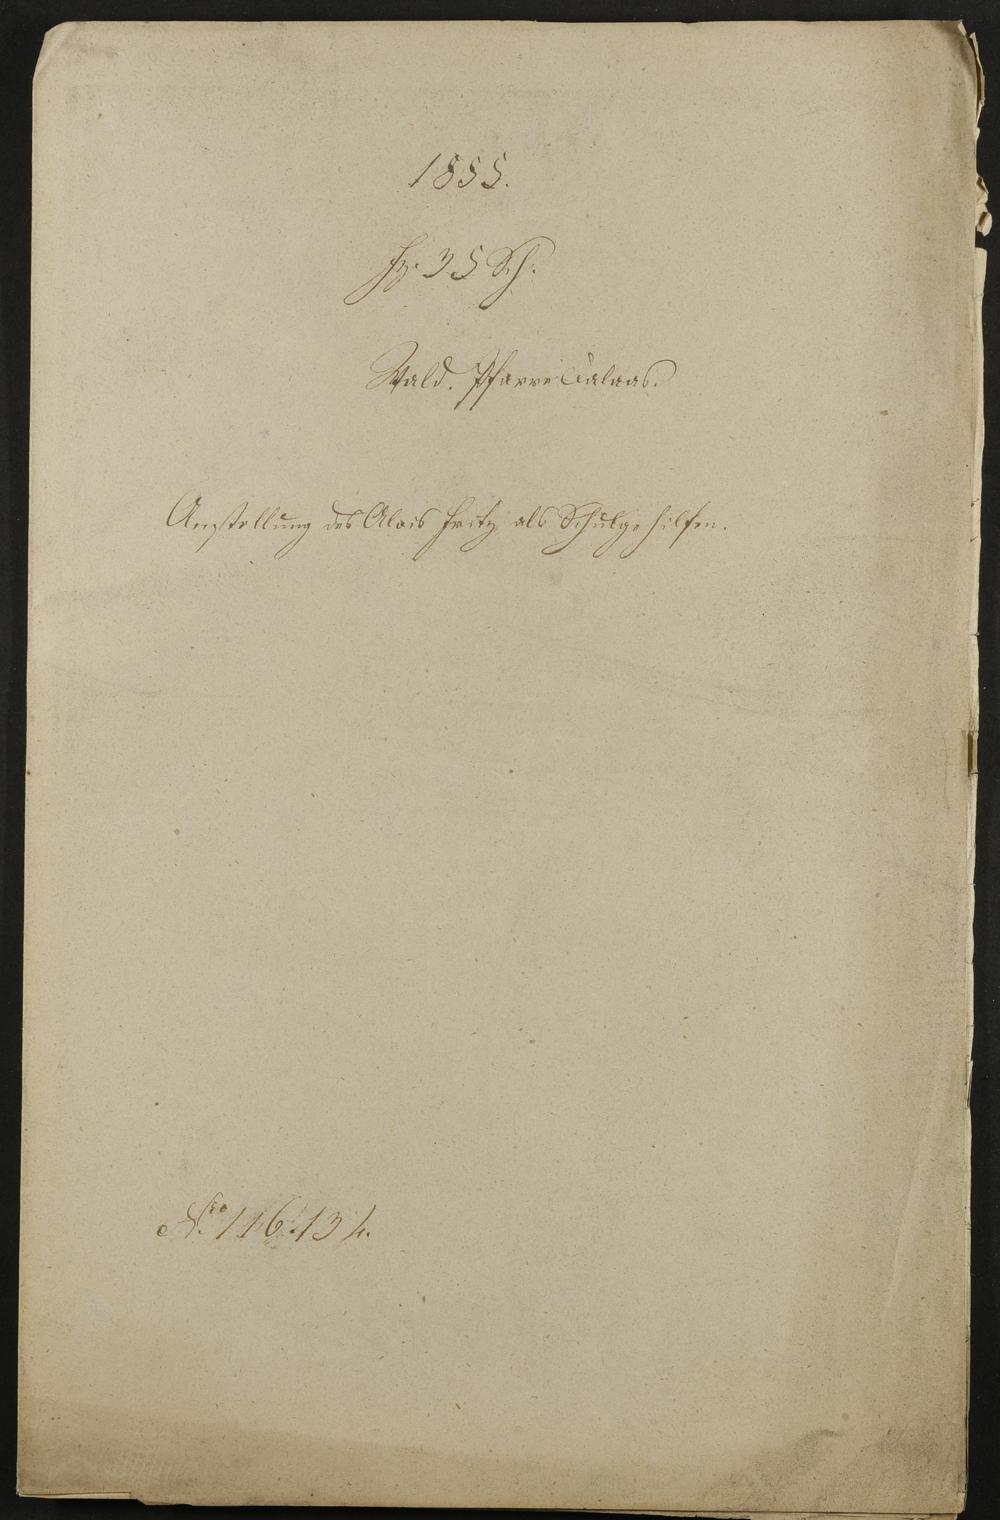 1855.
Fz. 35 Sch.
Wald. Pfarre Dalaas.
Anstellung des Alois Fritz als Schulgehilfen.
Nro 116:134.